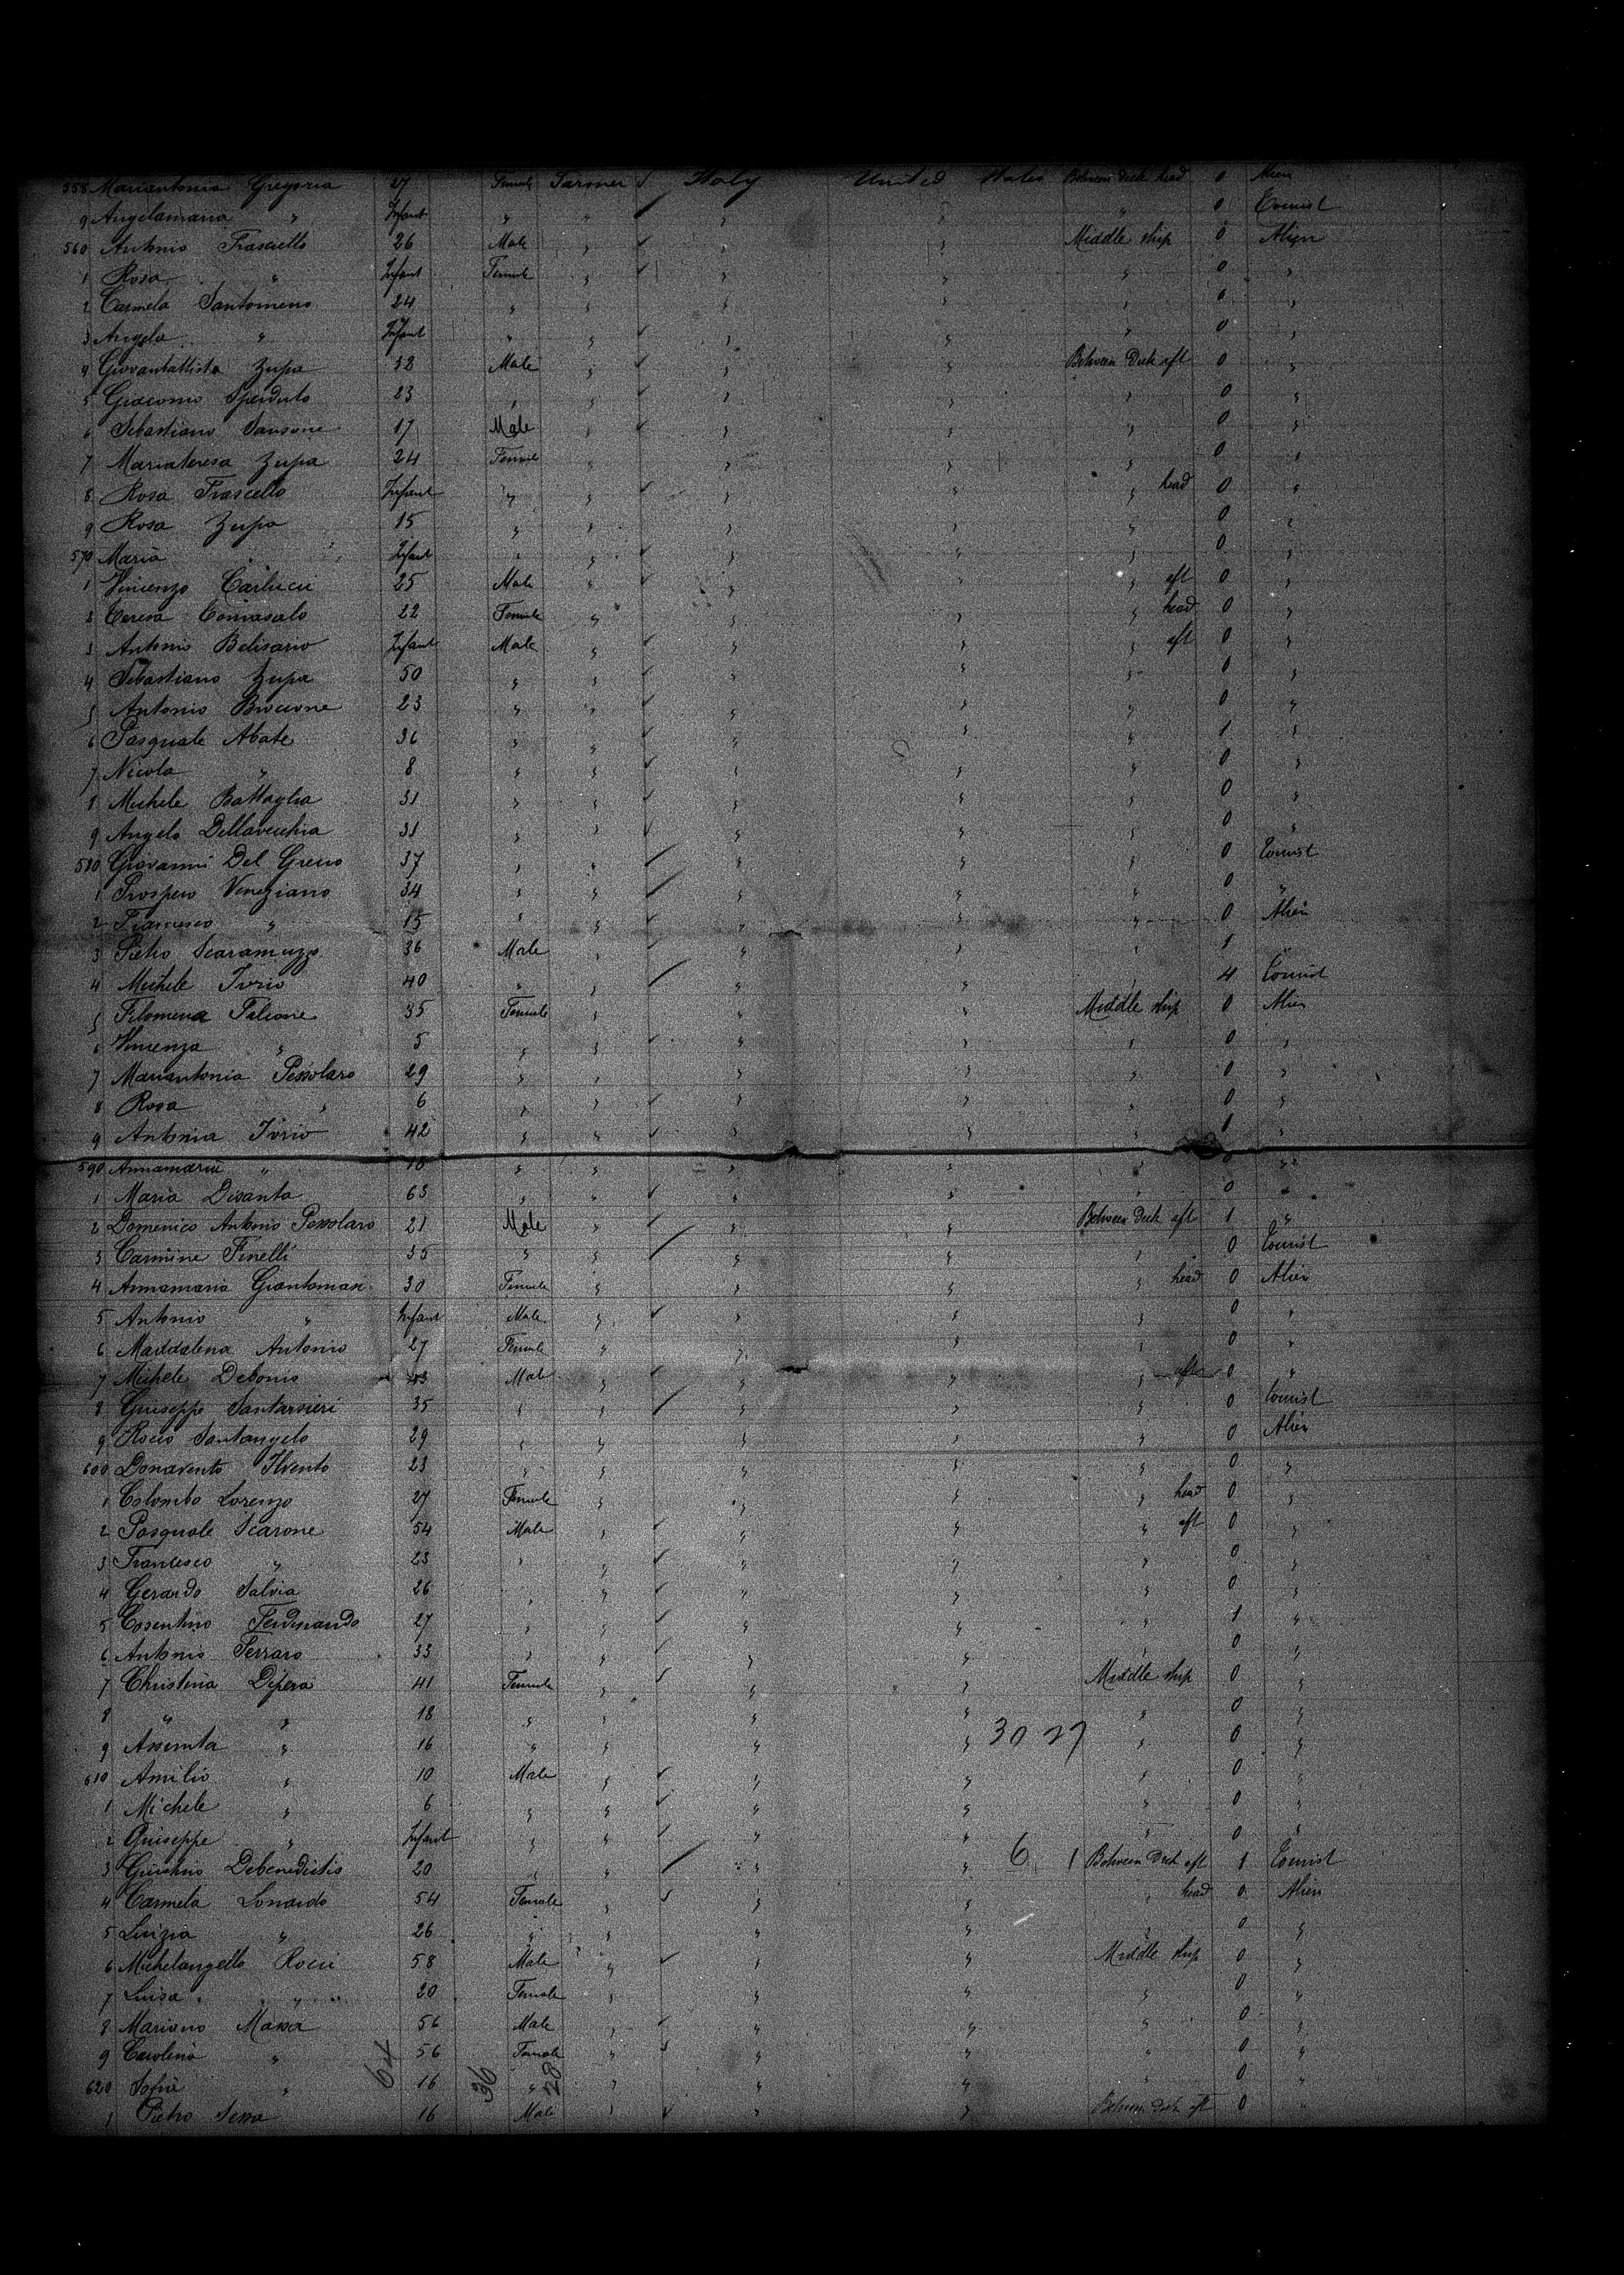 558 Mariantonia Gregoria 27 Female Farmer Italy United States Between Deck head 0 Alien
9 Angelamaria " Infant " " " " " 0 Tourist
560 Antonio Frasciello 26 Male " " " Middle ship 0 Alien
1 Rosa " Infant Female " " " " 0 "
2 Carmela Santomeno 24 " " " " " 0 "
3 Angela " Infant " " " " " 0 "
4 Giovanbattista Zupa 32 Male " " " Between Deck aft 0 "
5 Giacomo Sperduto 23 " " " " " 0 "
6 Sebastiano Sansone 17 Male " " " " 0 "
7 Mariateresa Zupa 24 Female " " " " 0 "
8 Rosa Frasciello Infant " " " " " head 0 "
9 Rosa Zupa 15 " " " " " 0 "
570 Maria " Infant " " " " " 0 "
1 Vincenzo Carlucci 25 Male " " " " aft 0 "
2 Teresa 22 Female " " " " head 0 "
3 Antonio Belisario Infant Male " " " " aft 0 "
4 Sebastiano Zupa 50 " " " " " 0 "
5 Antonio Brocione 23 " " " " " 0 "
6 Pasquale Abate 36 " " " " " 1 "
7 Nicola " 8 " " " " " 0 "
8 Michele Battaglia 31 " " " " " 0 "
9 Angelo Dellavecchia 31 " " " " " 0 "
580 Giovanni Del Greco 37 " " " " " 0 Tourist
1 Prospero Veneziano 34 " " " " " 0 "
2 Francesco " 15 " " " " " 0 Alien
3 Pietro Scaramuzzo 36 Male " " " " 1 "
4 Michele Ivrio 40 " " " " " 4 Tourist
5 Filomena Falcone 35 Female " " " Middle ship 0 Alien
6 Vincenza " 5 " " " " " 0 "
7 Mariantonia Pessolaro 29 " " " " " 0 "
8 Rosa " 6 " " " " " 0 "
9 Antonia Ivrio 42 " " " " " 1 "
590 Annamaria " " " " " " 0 "
1 Maria Disanta 63 " " " " " 0 "
2 Domenico Antonio Pessolaro 21 Male " " " Between Deck aft 1 "
3 Carmine Finelli 35 " " " " " 0 Tourist
4 Annamaria Giantomasi 30 Female " " " " head 0 Alien
5 Antonio " Infant Male " " " " 0 "
6 Maddalena Antonio 27 Female " " " " 0 "
7 Michele Debonis Male " " " " aft 0 "
8 Giuseppe Santarsieri 35 " " " " " 0 Tourist
9 Rocco Santangelo 29 " " " " " 0 Alien
600 Donavento Ilvento 23 " " " " " 0 "
1 Colomba Lorenzo 27 Female " " " " head 0 "
2 Pasquale Scarone 54 Male " " " " aft 0 "
3 Francesco " 23 " " " " " 0 "
4 Gerardo Salvia 26 " " " " " 0 "
5 Cosentino Ferdinando 27 " " " " " 1 "
6 Antonio Ferraro 33 " " " " " 0 "
7 Christina Dipera 41 Female " " " Middle ship 0 "
8 " " 18 " " " " " 0 "
9 Assunta " 16 " " " " 30 27 " 0 "
610 Amilio " 10 Male " " " " 0 "
1 Michele " 6 " " " " " 0 "
2 Giuseppe " Infant " " " " " 0 "
3 Debenedictis 20 " " " " 6 1 Between Deck aft 1 Tourist
4 Carmela Lonardo 54 Female " " " " head 0 Alien
5 " 26 " " " " " 0 "
6 Michelangello Rocci 58 Male " " " Middle ship 0 "
7 Luisa " 20 Female " " " " 0 "
8 Mariano Massa 56 Male " " " " 0 "
9 Carolina " 56 Female " " " " 0 "
620 Sofia " 16 " " " " " 0 "
1 Pietro Sessa 16 Male " " " Between Deck aft 0 "
64 36 28